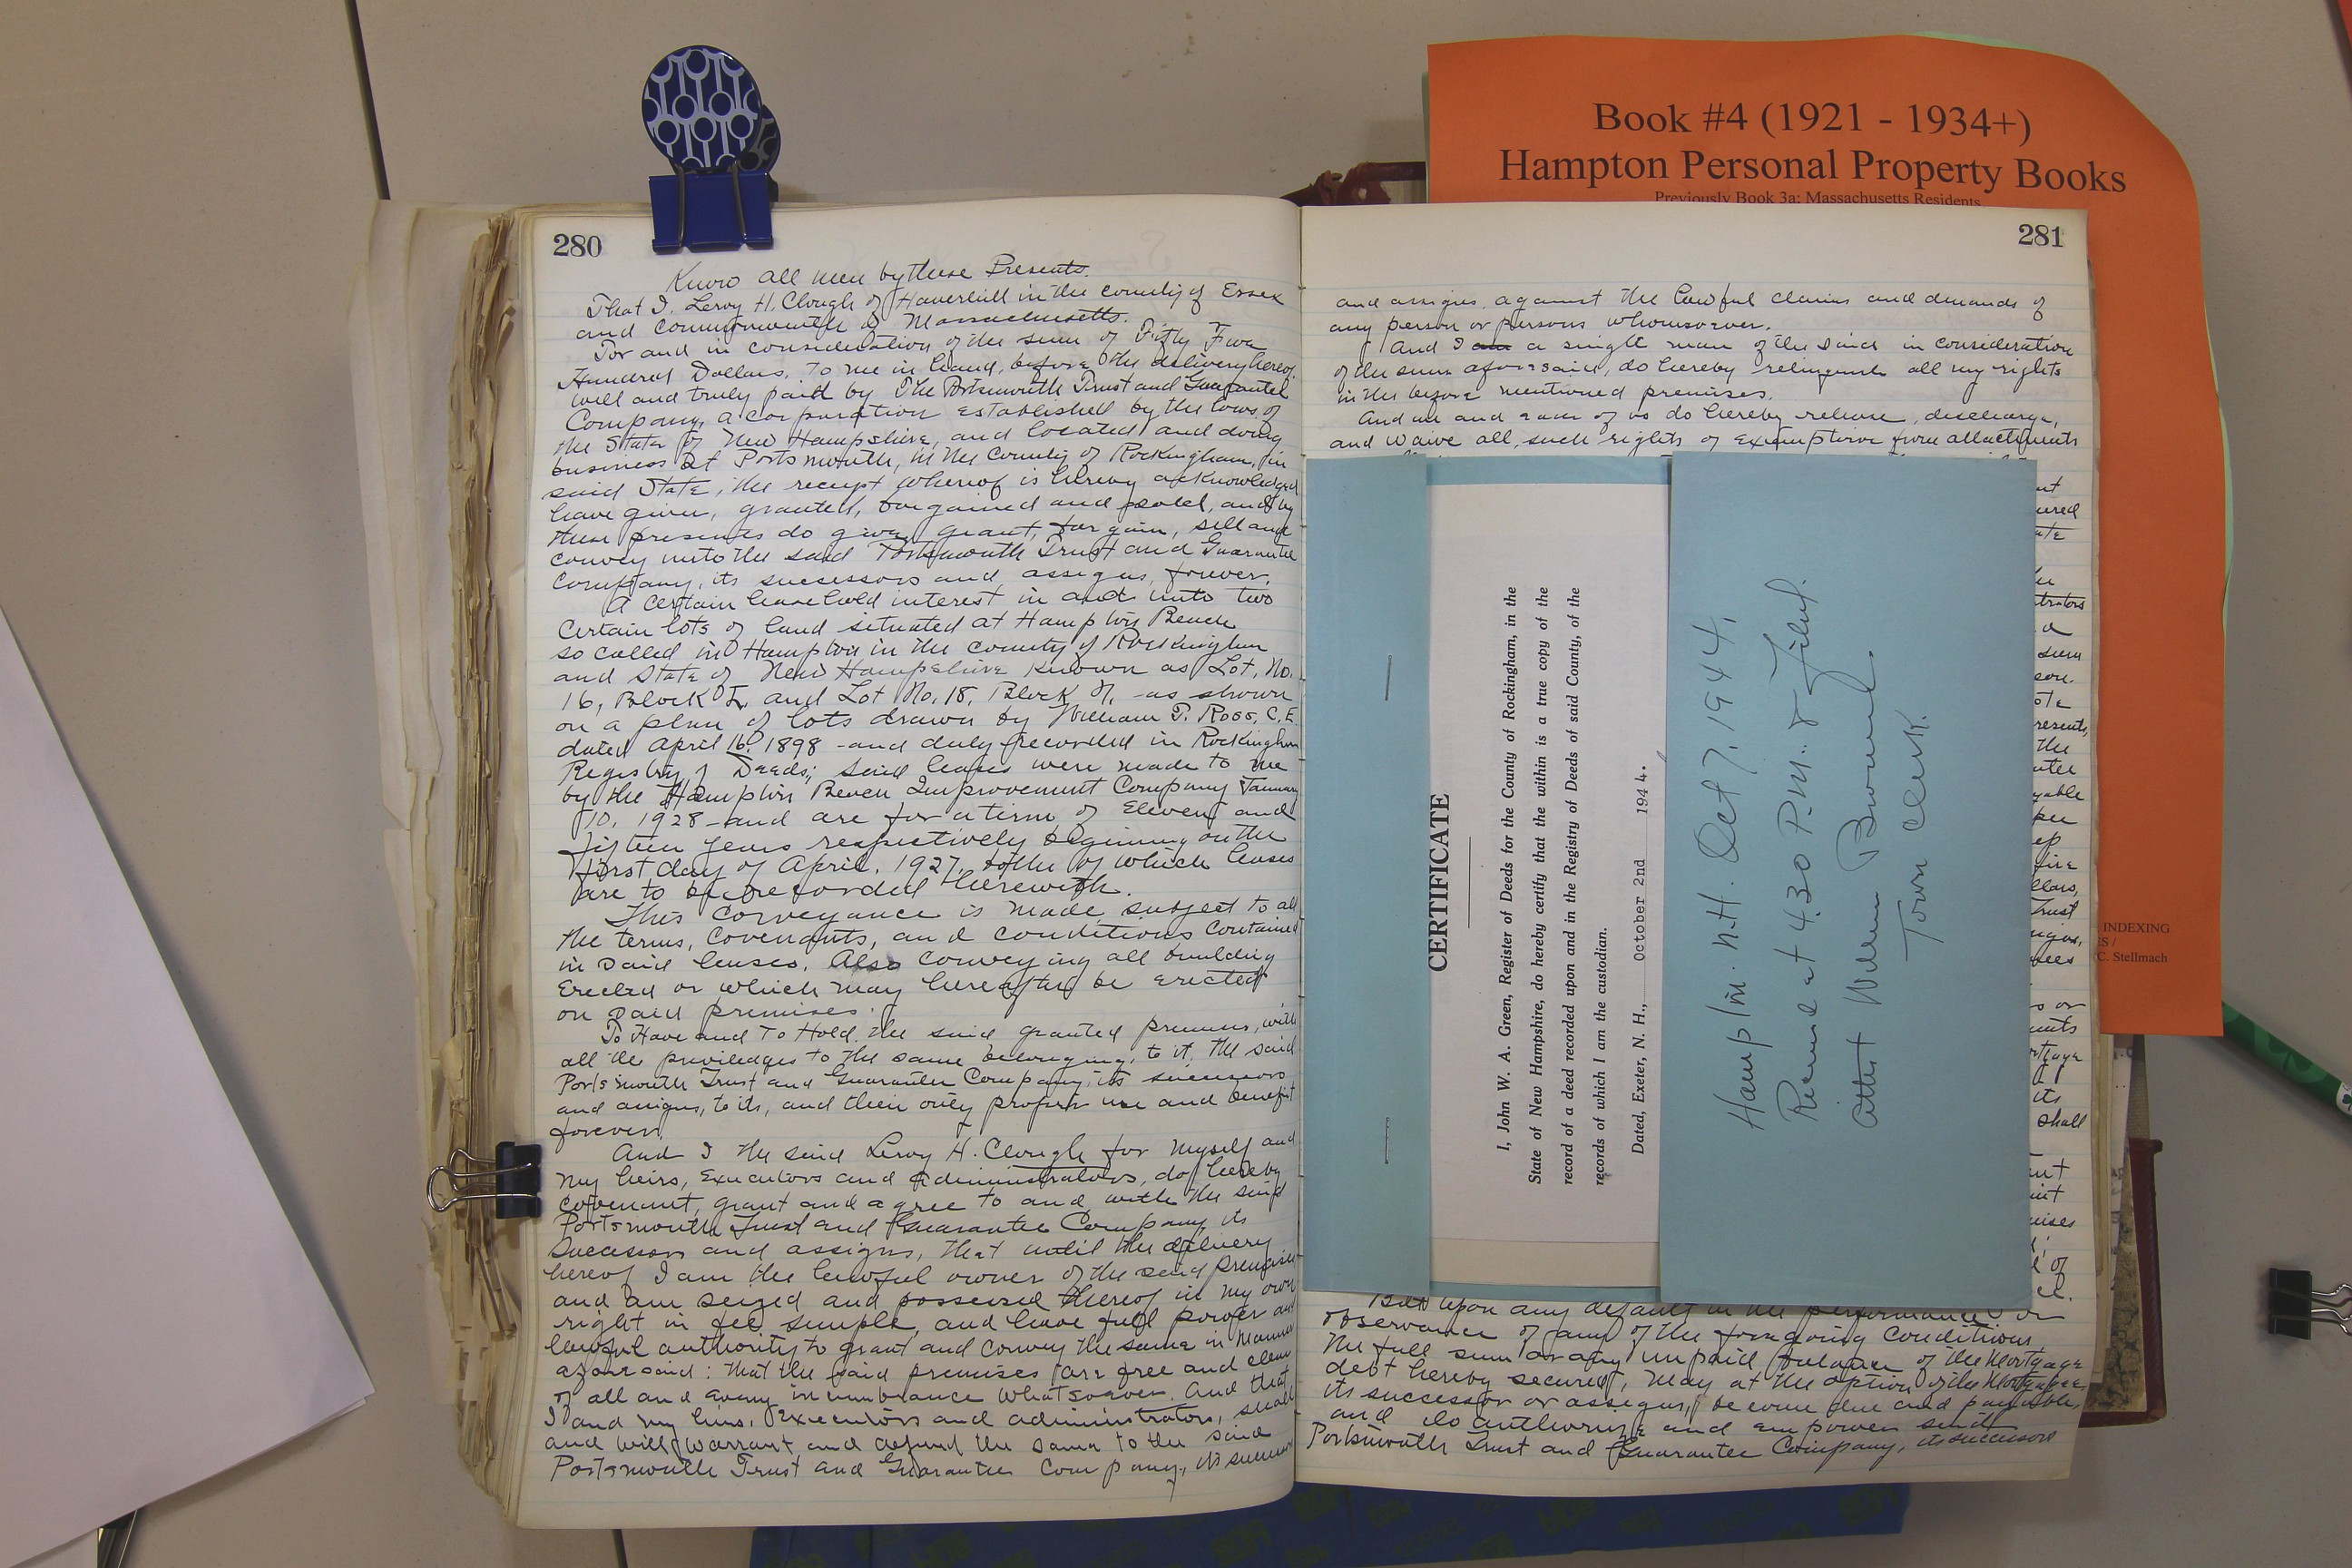 Book #4 (1921 - 1934+)
Hampton Personal Property Books
Previously Book 3a: Massachusetts Residents
280
Know all men by these Presents.
That I. Leroy H. Clough of Haverhill in the county of Essex
and Commonwealth of Massachusetts.
For and in consideration of the sum of Fifty Five
Hundred Dollars, To me in hand, before the delivery hereof,
well and truly paid by The Portsmouth Trust and Guarantee
Company, a corporation established by the laws of
the State of New Hampshire, and located and doing
business at Portsmouth, in the County of Rockingham, in
said State, the receipt whereof is hereby acknowledged
have given, granted, bargained and sold, and by
these presents do give, grant, bargain, sell and
convey unto the said Portsmouth Trust and Guarantee
Company, its successors and assigns, forever.
A certain leasehold interest in and unto two
certain lots of land situated at Hampton Beach
so called in Hampton in the county of Rockingham
and State of New Hampshire known as Lot, No.
16, Block and Lot No. 18, Block as shown
on a plan of lots drawn by William T. Ross, C.E.
dated April 16, 1898 - and duly recorded in Rockingham
Registry of Deeds; said leases were made to me
by the Hampton Beach Improvement Company January
10, 1928 - and are for a term of Eleven and
fifteen years respectively beginning on the
first day of April, 1927, both of which leases
are to be recorded herewith.
This conveyance is made subject to all
the terms, covenants, and conditions contained
in said leases. Also conveying all building
erected or which may hereafter be erected
on said premises.
To Have and To Hold the said granted premises, with
all the priviledges to the same belonging, to it, the said
Portsmouth Trust and Guarantee Company, its successors
and assigns, to its, and their only proper use and benefit
forever.
And I the said Leroy H. Clough for myself and
my heirs, executors and administrators, do hereby
covenant, grant and agree to and with the said
Portsmouth Trust and Guarantee Company, its
successors and assigns, that until the delivery
hereof I am the lawful owner of the said premises
and am seized and possessed thereof in my own
right in fee simple, and have full power and
lawful authority to grant and convey the same in manner
aforesaid: that the said premises are free and clear
of all and every incumbrance whatsoever. And that,
I and my heirs, executors and administrators, shall
and will warrant and defend the same to the said
Portsmouth Trust and Guarantee Company, its successors
281
and assigns, against the lawful claims and demands of
any person or persons whomsoever.
And I am a single man of the said in consideration
of the sum aforesaid, do hereby relinquish all my rights
in the before mentioned premises.
And we and each of us do hereby release, discharge,
and waive all such rights of exemption from attachments
CERTIFICATE
I, John W. A. Green, Register of Deeds for the County of Rockingham, in the
State of New Hampshire, do hereby certify that the within is a true copy of the
record of a deed recorded upon and in the Registry of Deeds of said County, of the
records of which I am the custodian.
Dated, Exeter, N. H., October 2nd 1944.
Hampton N.H. Oct 7, 1944,
Received at 4.30 P.M. & Filed.
Attest William Brown
Town Clerk.
trators
sum
the
yable
Trust
shall
But upon any default in the performance or
observance of any of the foregoing conditions
the full sum or any unpaid balance of the Mortgage
debt hereby secured, may at the option of the Mortgagee,
its successor or assigns, become due and payable,
and do authorize and empower said
Portsmouth Trust and Guarantee Company, its successors
INDEXING
C. Stellmach